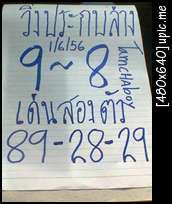 วิ่งประกบล่าง
1/6/56
9~8
TamCHaboy
เด่นสองตัว
89-28-29
[480x640] upic.me